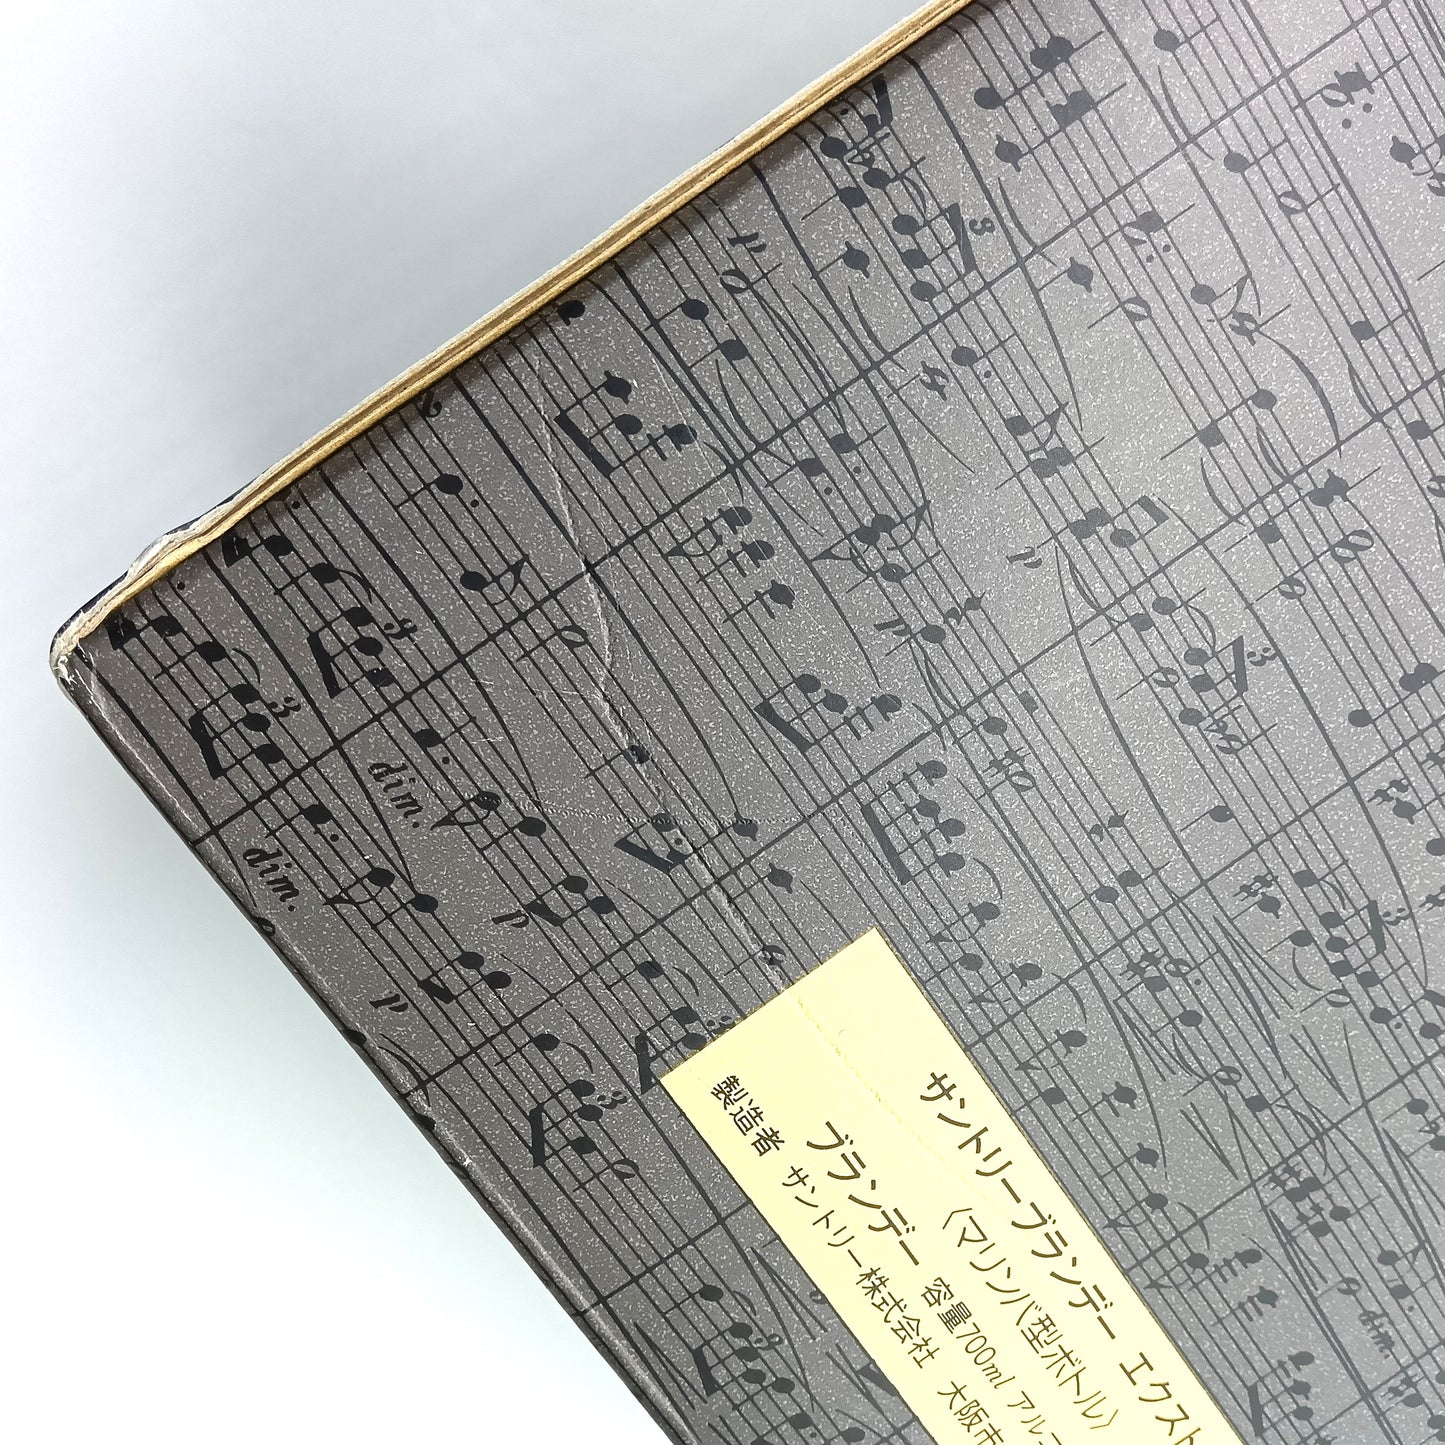 サントリーブランデー エクスト
〈マリンバ型ボトル〉
ブランデー 容量700ml アルコ
製造者 サントリー株式会社 大阪市
dim.
dim.
dim.